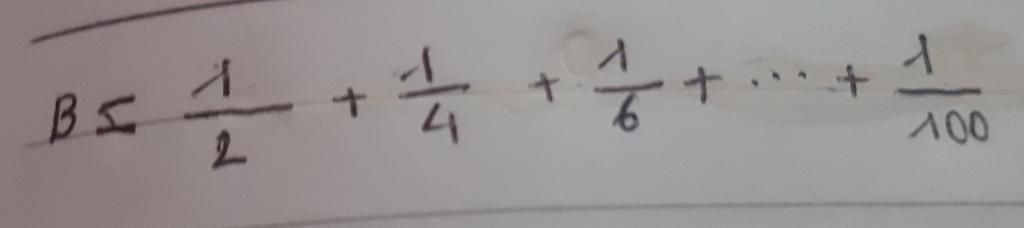 B = 1/2 + 1/4 + 1/6 + ... + 1/100